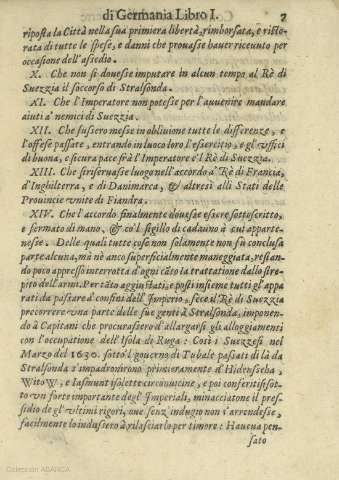 di Germania Libro I. 7
riposta la Città nella sua primiera libertà, rimborsata, e risto-
rata di tutte le spese, e danni che prouasse hauer riceuuto per
occasione dell'assedio.
X. Che non si douesse imputare in alcun tempo al Rè di
Suezzia il soccorso di Stralsonda.
XI. Che l'Imperatore non potesse per l'auuenire mandare
aiuti a' nemici di Suezzia.
XII. Che fussero messe in obliuione tutte le differenze, e
l'offese passate, entrando in luoco loro l'essercitio, e gl'vffici
di buona, e sicura pace frà l'Imperatore e'l Rè di Suezzia.
XIII. Che si riseruasse luogo nell'accordo a' Rè di Francia,
d'Inghilterra, e di Danimarca, & altresi alli Stati delle
Prouincie vnite di Fiandra.
XIV. Che l'accordo finalmente douesse essere sottoscritto,
e fermato di mano, & co'l sigillo di cadauno a cui apparte-
nesse. Delle quali tutte cose non solamente non fù conclusa
parte alcuna, ma nè anco superficialmente maneggiata, restan-
do poco appresso interrotta d'ogni cãto la trattatione dallo stre-
pito dell'armi. Per tãto aggiustati, e posti insieme tutti gl'appa
rati da passare a' confini dell'Imperio, fece il Rè di Suezzia
precorrere vna parte delle sue genti à Stralsonda, imponen-
do à Capitani che procurassero d'allargarsi gli alloggiamenti
con l'occupatione dell'Isola di Ruga: Così i Suezzesi nel
Marzo del 1630. sotto'l gouerno di Tubale passati di là da
Stralsonda s'impadronirono primieramente d'Hidensseha,
Witow, e Iasmunt isolette circonuicine, e poi conferitisi sot-
to vn forte importante degl'Imperiali, minacciatone il pre-
sidio de gl'vltimi rigori, oue senz'indugio non s'arrendesse,
facilmente lo indussero à rilasciarlo per timore: Haueua pen-
sato
Colección ABANCA